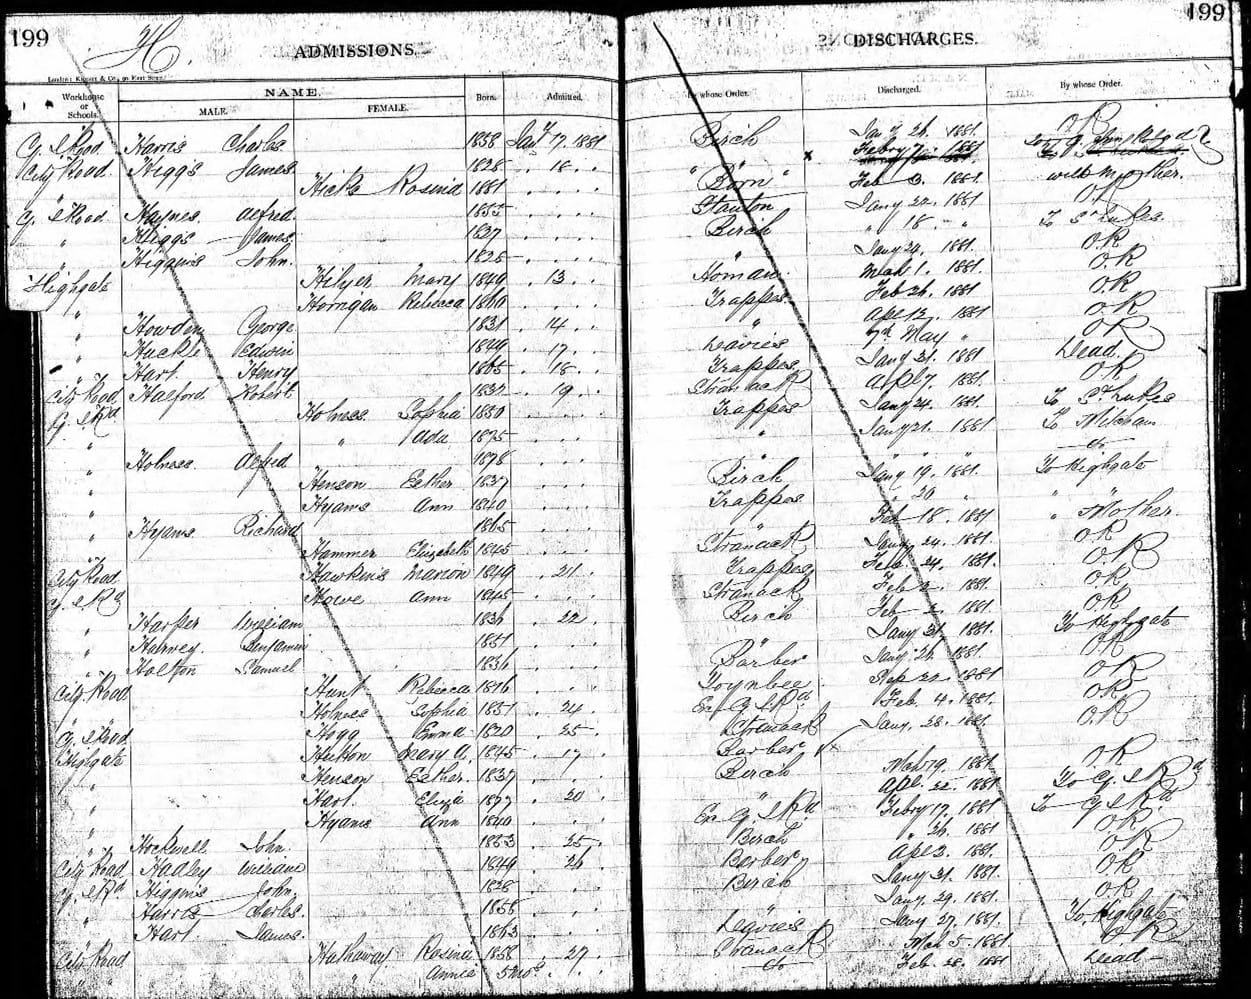 199
H.
ADMISSIONS.
London: Knight & Co., 90 Fleet Street
Workhouse or Schools.
NAME.
MALE.
FEMALE.
Born.
Admitted.
G. I Road Harris Charles 1858 Jany 17. 1881
City Road Higgs James 1828 . 18 . .
Hicks Rosina 1881 . . . .
G. I Road Haynes. Alfred. 1855 . . . .
" Higgs James. 1837 . . . .
" Higgins John. 1828 . . . .
Highgate Hilyer Mary 1849 . 13 . .
" Horrigan Rebecca 1860 . . . .
" Howden George 1831 . 14 . .
" Huckle Edwin 1849 . 17 . .
" Hart Henry 1865 . 18 . .
City Road Halford Robert 1837 . 19 . .
G. I Rd Holmes. Sophia 1850 . . . .
" " Ada 1875 . . . .
" Holmes. Alfred 1878 . . . .
" Henson Esther 1837 . . . .
" Hyams Ann 1840 . . . .
" Hyams Richard 1865 . . . .
" Hammer Elizabeth 1845 . . . .
City Road Hawkins Marion 1849 . 21 . .
G. I Rd Howe Ann 1845 . . . .
" Harper William 1836 . 22 . .
" Harvey. Benjamin 1851 . . . .
" Holton Samuel 1836 . . . .
City Road Hunt Rebecca 1816 . . .
" Holmes Sophia 1851 . 24 . .
G. I Road Hogg Emma 1820 . 25 . .
Highgate Hutton Mary A. 1845 . 17 . .
" Henson Esther. 1837 . . . .
" Hart. Eliza 1877 . 20 . .
" Hyams Ann 1840 . . . .
" Hockwell John. 1853 . 25 . .
City Road Hadley William 1849 . 26 . .
G. I Rd Higgins John. 1828 . . . .
" Harris Charles. 1858 . . . .
" Hart. James. 1863 . . . .
City Road Hathaway Rosina 1858 . 27 . .
" " Annie 5 mos . . . .
199
DISCHARGES.
By whose Order.
Discharged.
By whose Order.
Birch Jany 26. 1881. OK
" x Febry 7. 1881
"Born" Feb 3. 1881. with mother.
Stanton Jany 22. 1881 OK
Birch " 18. " To St Lukes.
" Jany 24. 1881. OK
Homan. Mch 1. 1881. OK
Trappes. Feb 26. 1881 OK
" Apl 12. 1881 OK
Davies 7th May " OK
Trappes. Jany 21. 1881. Dead.
Stranack Apl 7. 1881. OK
Trappes Jany 24. 1881. To St Lukes
" Jany 21. 1881 To Mitcham
" " " do
Birch Jany 19. 1881. To Highgate
Trappes " 20 " "
" Feb 18. 1881 " Mother.
Stranack Jany 24. 1881. OK
Trappes Feb 24. 1881. OK
Stranack Feb 2. 1881. OK
Birch Feb 2. 1881 OK
" Jany 31. 1881. To Highgate
Barber Jany 26. 1881. OK
Toynbee Sep 22. 1881 OK
Ex G. I Rd Feb. 4. 1881. OK
Stranack Jany. 28. 1881. OK
Barber
Birch Mch 19. 1881. OK
" Apl. 22. 1881 To G. I Rd
Ex G. I Rd. Febry 17. 1881 To G I Rd
Birch " 26. 1881 OK
Barber Apl 2. 1881. OK
Birch Jany 31. 1881. OK
" Jany. 29. 1881. OK
Davies Jany 27. 1881. To Highgate
Stranack Mch 5. 1881. OK
do Feb. 28. 1881 Dead